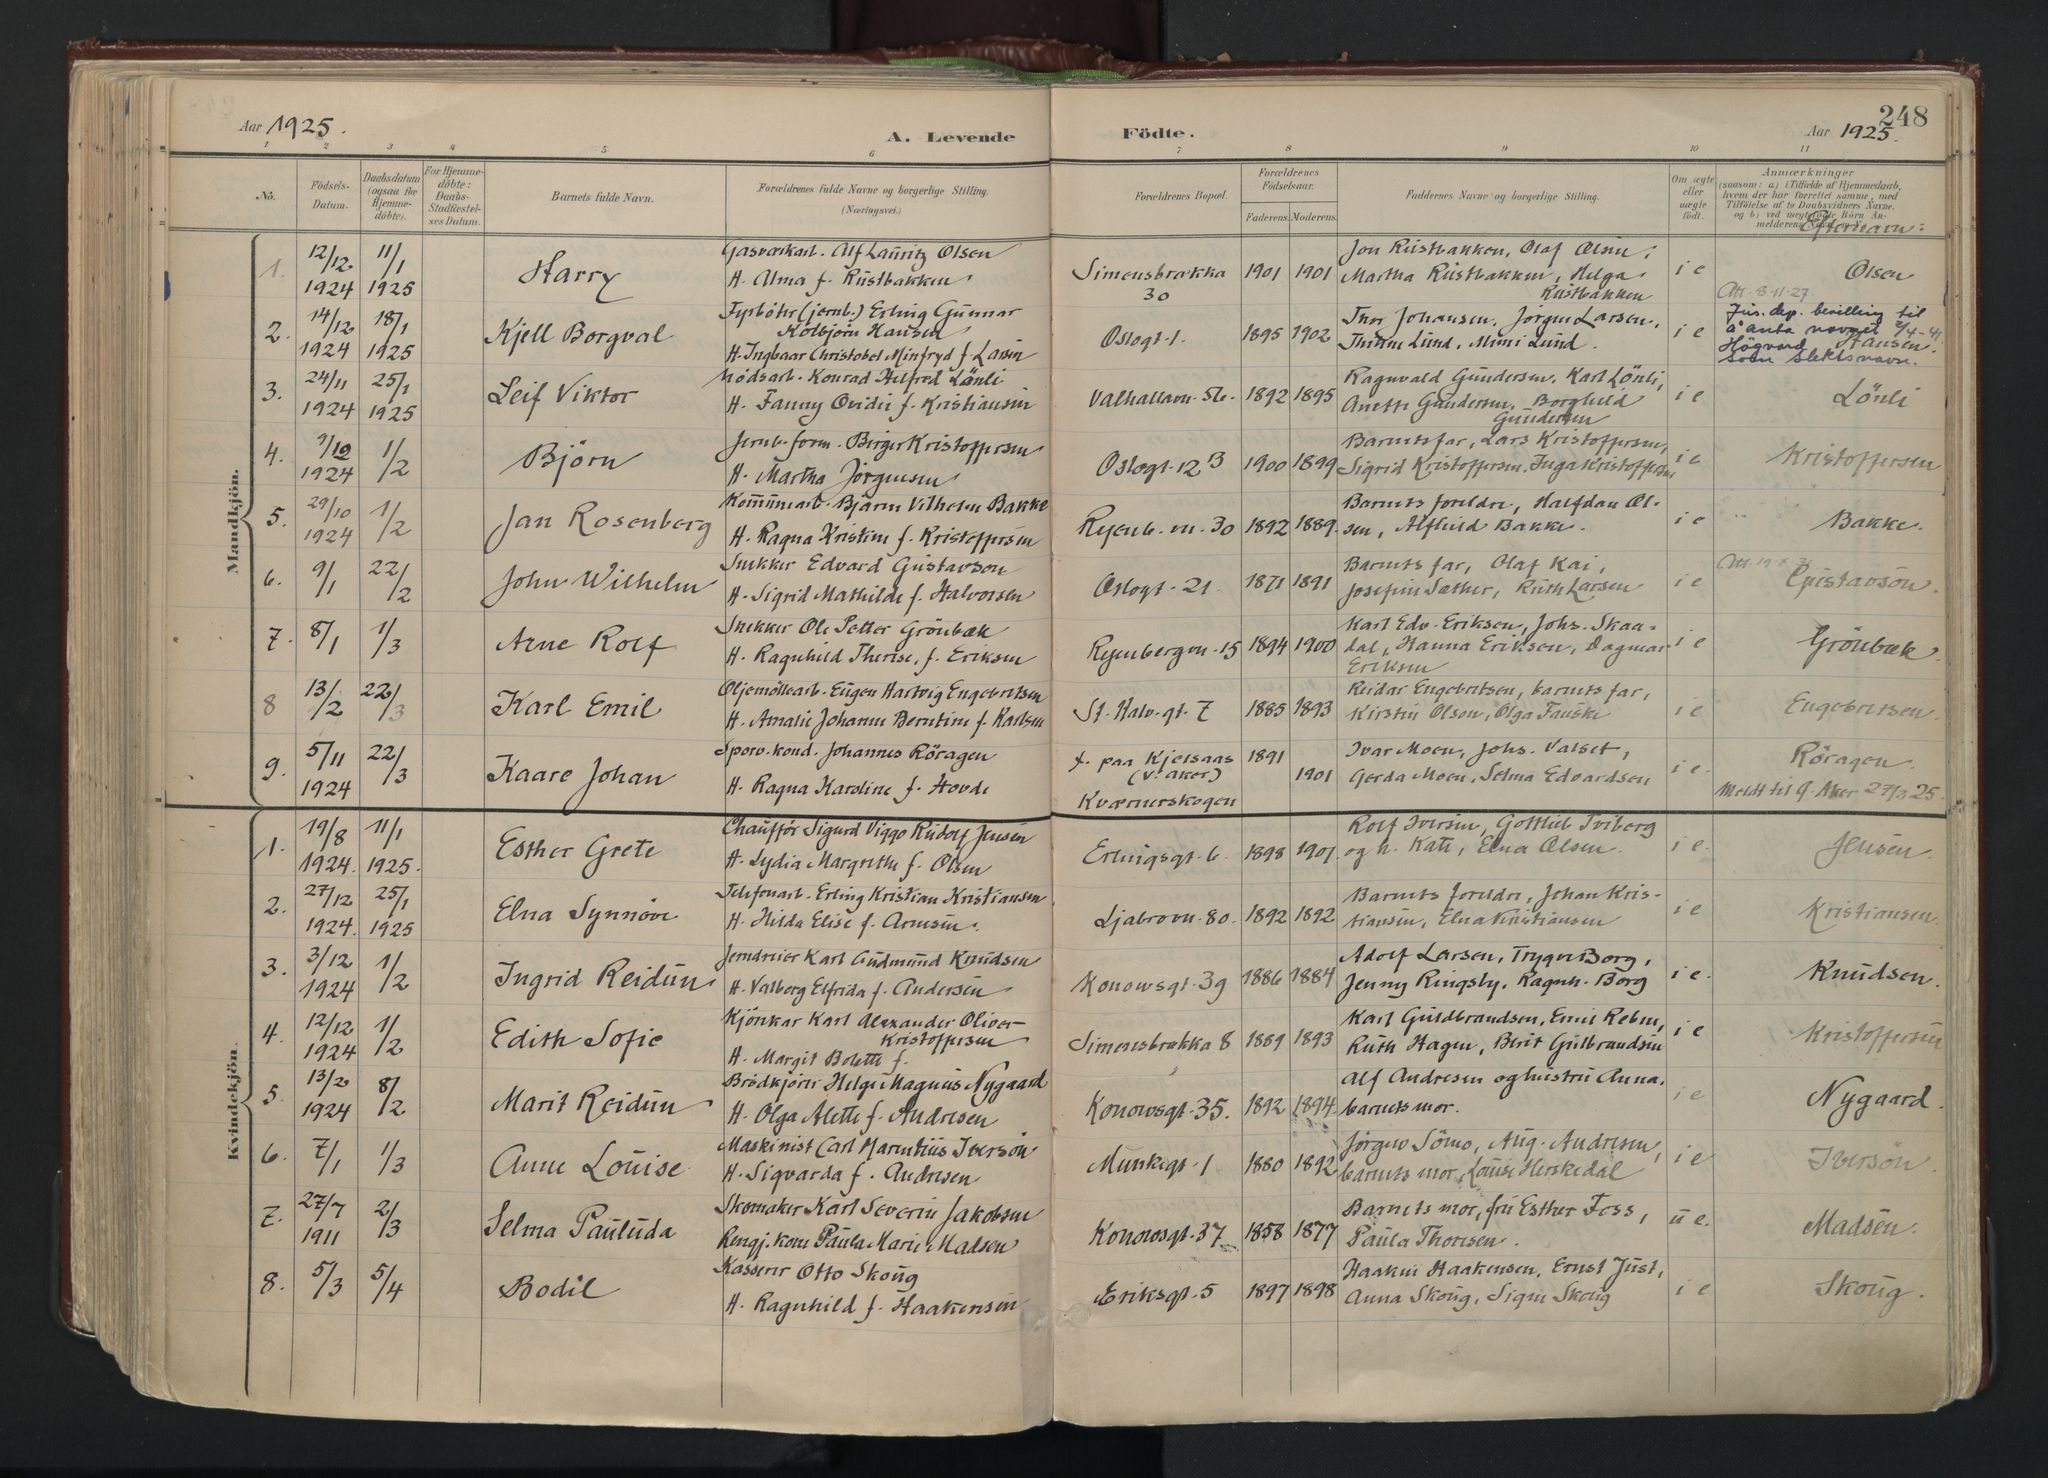 248
Aar 1925.
A. Levende
Födte.
Aar 1925.
1 2 3 4 5 6 7 8 9 10 11
No.
Födsels-Datum.
Daabsdatum (ogsaa for Hjemmedöbte).
For Hjemmedöbte: Daabs-Stadfæstelses Datum.
Barnets fulde Navn.
Forældrenes fulde Navne og borgerlige Stilling. (Næringsvei.)
Forældrenes Bopæl.
Forældrenes Födselsaar.
Faderens. Moderens.
Faddernes Navne og borgerlige Stilling.
Om ægte eller uægte födt.
Anmærkninger
(saasom: a) i Tilfælde af Hjemmedaab, hvem der har forrettet samme, med Tilföielse af to Daabsvidners Navne.
Efternavn:
Mandkjön.
1. 12/12 1924 11/1 1925 Harry
Gasværkarb. Alf Lauritz Olsen
H. Alma f. Rustbakken
Simensbrækka 30 1901 1901
Jon Rustbakken, Olaf Olsen,
Martha Rustbakken, Helga
Rustbakken
i e Olsen
Att. 8-11-27
2. 14/12 1924 18/1 1925 Kjell Borgval
Fyrböter (jernb.) Erling Gunnar
Kolbjörn Hansen
H. Ingbaar Christobel Minfryd f. Larsen
Oslogt. 1. 1895 1902
Thor Johansen, Jörgen Larsen,
Thinne Lund, Mimi Lund.
i e Hansen.
Jus. dep. bevilling til
å anta navnet 2/4-41
Högvard
som slektsnavn.
3. 24/11 1924 25/1 1925 Leif Viktor
Nödsarb. Konrad Hilfred Lönli
H. Fanny Ovidie f. Kristiansen
Valhallavn. 56. 1892 1895
Ragnvald Gundersen, Karl Lönli,
Anette Gundersen, Borghild
Gundersen
i e Lönli
4. 9/12 1924 1/2 Björn
Jernb. form. Birger Kristoffersen
H. Martha Jörgensen
Oslogt. 12 B 1900 1899
Barnets far, Lars Kristoffersen,
Sigrid Kristoffersen, Inga Kristoffersen
i e Kristoffersen
5. 29/10 1924 1/2 Jan Rosenberg
Kommunearb. Bjarne Vilhelm Bakke
H. Ragna Kristine f. Kristoffersen
Ryenb.vn. 30 1892 1889
Barnets foreldre, Halfdan Ol-
sen, Alfhild Bakke.
i e Bakke.
6. 9/1 22/2 John Wilhelm
Snekker Edvard Gustavson
H. Sigrid Mathilde f. Halvorsen
Oslogt. 21. 1871 1891
Barnets far, Olaf Kai,
Josefine Sæther, Ruth Larsen
i e Gustavsön.
7. 8/1 1/3 Arne Rolf
Snekker Ole Petter Grönbæk
H. Ragnhild Therese, f. Eriksen
Ryenbergvn. 15 1894 1900
Karl Edv. Eriksen, Johs. Skaa-
dal, Hanna Eriksen, Dagmar
Eriksen
i e Grönbæk.
8 13/2 22/3 Karl Emil
Oljemöllearb. Eugen Hartvig Engebretsen
H. Amalie Johanne Berntine f. Karlsen
St. Halv.gt. 7 1885 1893
Reidar Engebretsen, barnets far,
Kirstin Olson, Olga Fauske
i e Engebretsen.
9. 5/11 1924 22/3 Kaare Johan
Sporv.kond. Johannes Röragen
H. Ragna Karoline f. Hovde
f. paa Kjelsaas
(v. Aker)
Kværnerskogen
1891 1901
Ivar Moen, Johs. Valset,
Gerda Moen, Selma Edvardsen
i e. Röragen.
Meldt til Ö. Aker 27/3 25.
Kvindekjön.
1. 19/8 1924. 11/1 1925. Esther Grete
Chaufför Sigurd Viggo Rudolf Jensen
H. Lydia Margrethe f. Olsen
Erlingsgt. 6. 1898 1901
Rolf Iversen, Gottlieb Tviberg
og h. Kate, Elna Olsen.
i e. Jensen.
2. 27/12 1924. 25/1 1925 Elna Synnöve
Telefonarb. Erling Kristian Kristiansen
H. Hilda Elise f. Arnesen.
Ljabrovn. 80. 1892 1892
Barnets foreldre, Johan Kris-
tiansen, Elna Kristiansen
i e Kristiansen.
3. 3/12 1924 1/2 Ingrid Reidun
Jerndreier Karl Gudmund Knudsen
H. Valborg Elfrida f. Andersen
Konowsgt. 39 1886 1884
Adolf Larsen, Trygve Borg,
Jenny Ringsby, Ragnh. Borg
i e. Knudsen.
4. 12/12 1924 1/2 Edith Sofie
Kjörekar Karl Alexander Oliver
Kristoffersen
H. Margit Bolette f.
Simensbrækka 8 1889 1893
Karl Guldbrandsen, Emil Rebne,
Ruth Hagen, Berit Gulbrandsen
i e Kristoffersen
5. 13/20 1924 8/2 Marit Reidun
Brödkjörer Helge Magnus Nygaard
H. Olga Alette f. Andresen
Konowsgt. 35. 1892 1894
Alf Andresen og hustru Anna,
barnets mor.
i e Nygaard.
6. 7/1 1/3 Anne Louise
Maskinist Carl Marentius Iversön
H. Sigvarda f. Andresen
Munkegt. 1 1880 1892
Jörgen Sömo, Aug. Andresen,
barnets mor, Louise Herskedal
i e Iversön.
7. 27/7 1911 2/3 Selma Pauluda
Skomaker Karl Severin Jakobsen
Rengj.kone Paula Marie Madsen
Konowsgt. 37 1858 1877
Barnets mor, fru Esther Foss,
Paula Thoresen.
u e. Madsen.
8. 5/3 5/4 Bodil
Kasserer Otto Skoug
H. Ragnhild f. Haakensen
Eriksgt. 5 1897 1898
Haakin Haakensen, Ernst Just,
Anna Skoug, Signe Skoug
i e Skoug.